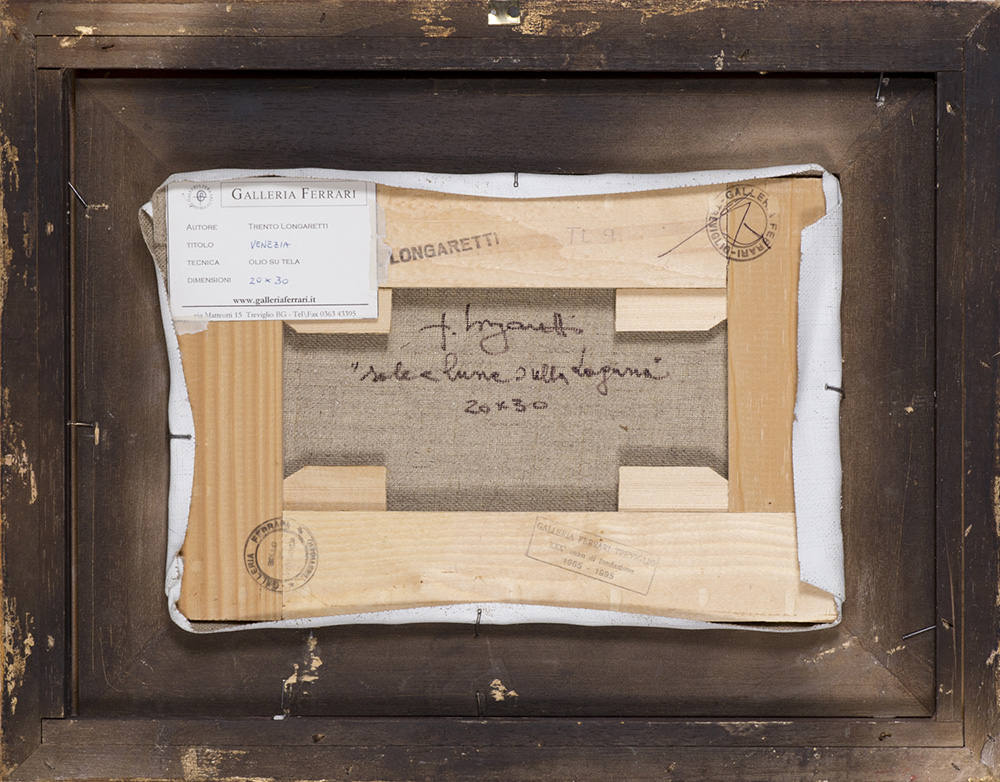 GALLERIA FERRARI
AUTORE TRENTO LONGARETTI
TITOLO VENEZIA
TECNICA OLIO SU TELA
DIMENSIONI 20 x 30
www.galleriaferrari.it
via Matteotti 15 Treviglio BG - Tel\Fax 0363 43395
LONGARETTI
GALLERIA FERRARI
T. Longaretti
"sole e luna sulla laguna"
20x30
GALLERIA FERRARI
GALLERIA FERRARI TREVIGLIO
XXX° anno di fondazione
1965 - 1995